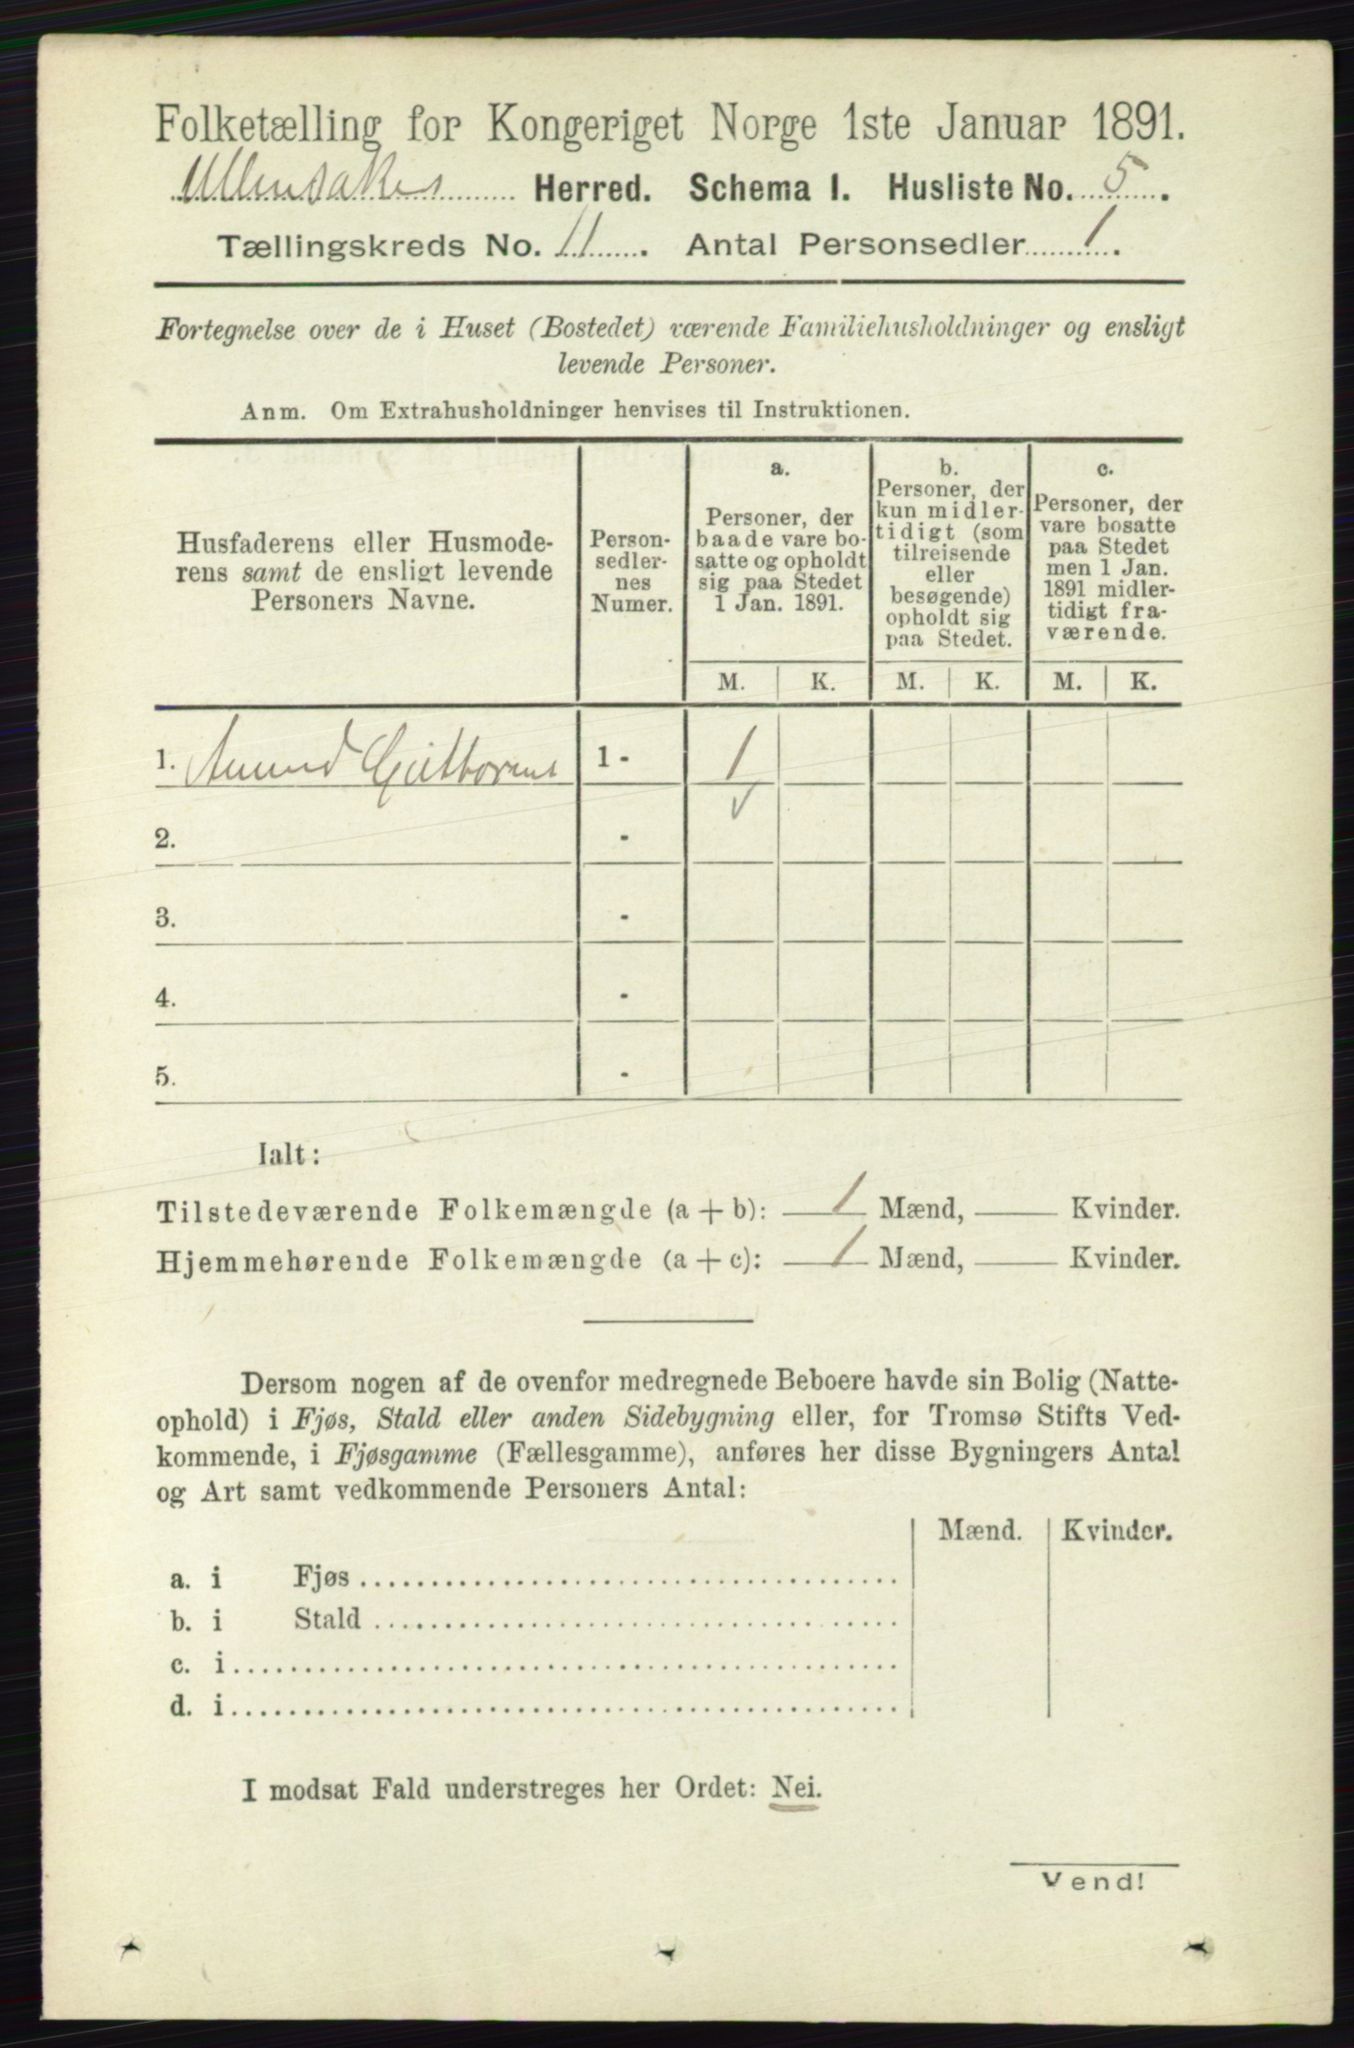 Folketælling for Kongeriget Norge 1ste Januar 1891.
Ullensaker Herred. Schema I. Husliste No. 5.
Tællingskreds No. 11. Antal Personsedler 1.
Fortegnelse over de i Huset (Bostedet) værende Familiehusholdninger og ensligt
levende Personer.
Anm. Om Extrahusholdninger henvises til Instruktionen.
Husfaderens eller Husmode-
rens samt de ensligt levende
Personers Navne.
Person-
sedler-
nes
Numer.
a.
Personer, der
baade vare bo-
satte og opholdt
sig paa Stedet
1 Jan. 1891.
b.
Personer, der
kun midler-
tidigt (som
tilreisende
eller
besøgende)
opholdt sig
paa Stedet.
c.
Personer, der
vare bosatte
paa Stedet
men 1 Jan.
1891 midler-
tidigt fra-
værende.
M. K. M. K. M. K.
1. Amund 1 - 1
2. -
3. -
4. -
5. -
Ialt:
Tilstedeværende Folkemængde (a + b): 1 Mænd, Kvinder.
Hjemmehørende Folkemængde (a + c): 1 Mænd, Kvinder.
Dersom nogen af de ovenfor medregnede Beboere havde sin Bolig (Natte-
ophold) i Fjøs, Stald eller anden Sidebygning eller, for Tromsø Stifts Ved-
kommende, i Fjøsgamme (Fællesgamme), anføres her disse Bygningers Antal
og Art samt vedkommende Personers Antal:
Mænd. Kvinder.
a. i Fjøs
b. i Stald
c. i
d. i
I modsat Fald understreges her Ordet: Nei.
Vend!